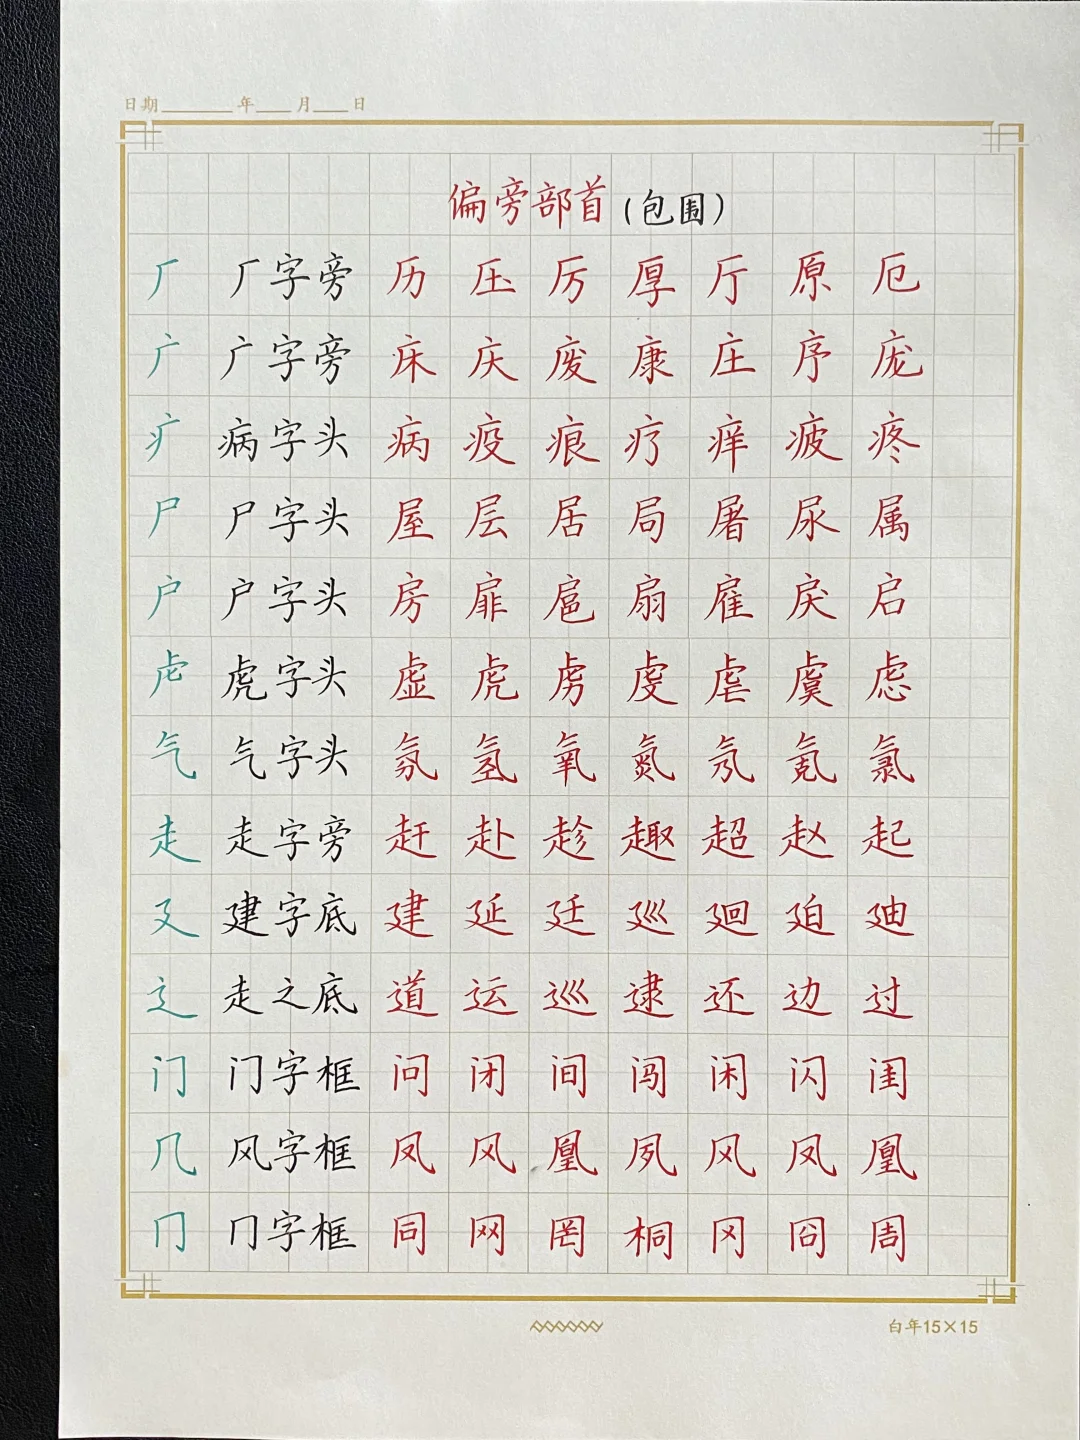 日期 年 月 日
偏旁部首(包围)
厂 厂字旁 历 压 厉 厚 厅 原 厄
广 广字旁 床 庆 废 康 庄 序 庞
疒 病字头 病 疫 痕 疗 痒 疲 疼
尸 尸字头 屋 层 居 局 屠 尿 属
户 户字头 房 扉 扈 扇 雇 戾 启
虍 虎字头 虚 虎 虏 虔 虐 虞 虑
气 气字头 氛 氢 氧 氮 氖 氪 氯
走 走字旁 赶 赴 趁 趣 超 赵 起
廴 建字底 建 延 廷 廵 廻 廹 廸
辶 走之底 道 运 巡 逮 还 边 过
门 门字框 问 闭 间 闯 闲 闪 闺
几 风字框 凤 风 凰 夙 风 凤 凰
冂 冂字框 同 网 罔 桐 冈 囧 周
白年15×15